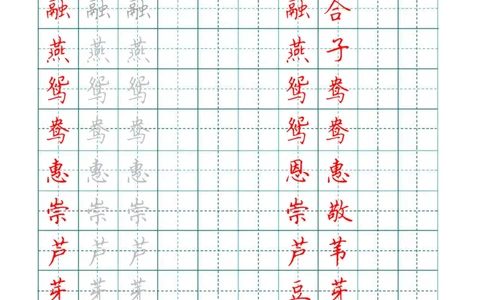 融 融 融 融 合
燕 燕 燕 燕 子
鸳 鸳 鸳 鸳 鸯
鸯 鸯 鸯 鸳 鸯
惠 惠 惠 恩 惠
崇 崇 崇 崇 敬
芦 芦 芦 芦 苇
芽 芽 芽 豆 芽